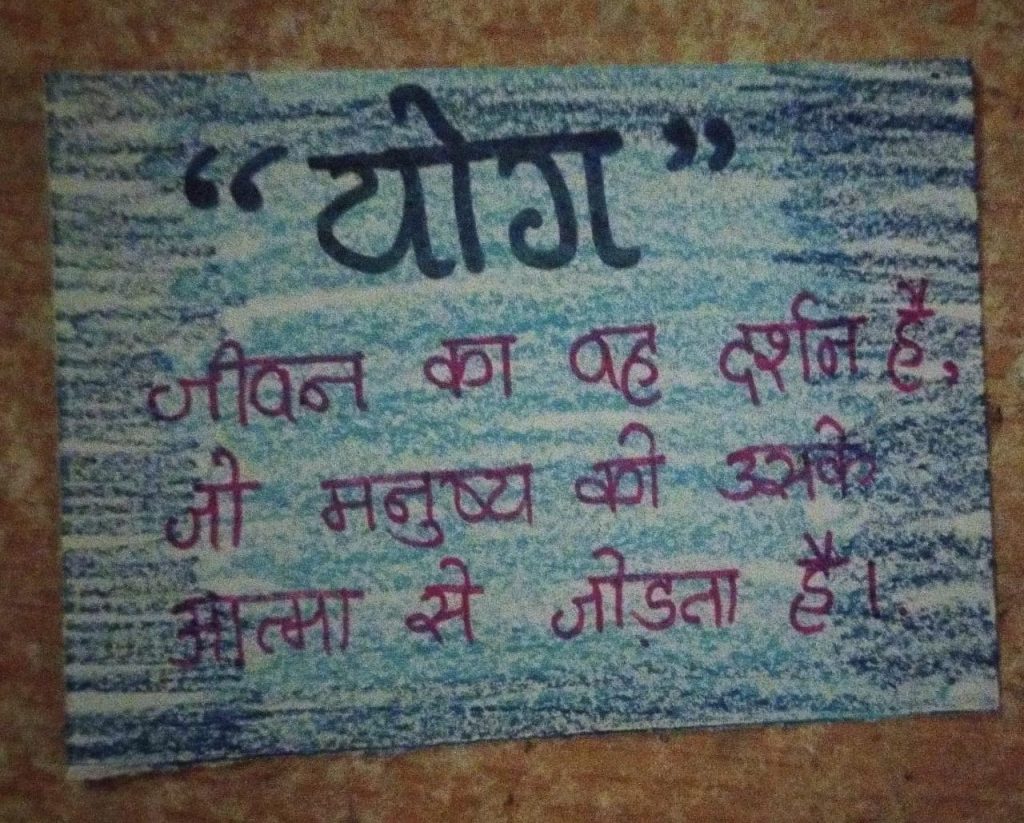 “योग”
जीवन का वह दर्शन है,
जो मनुष्य को उसके
आत्मा से जोड़ता है।